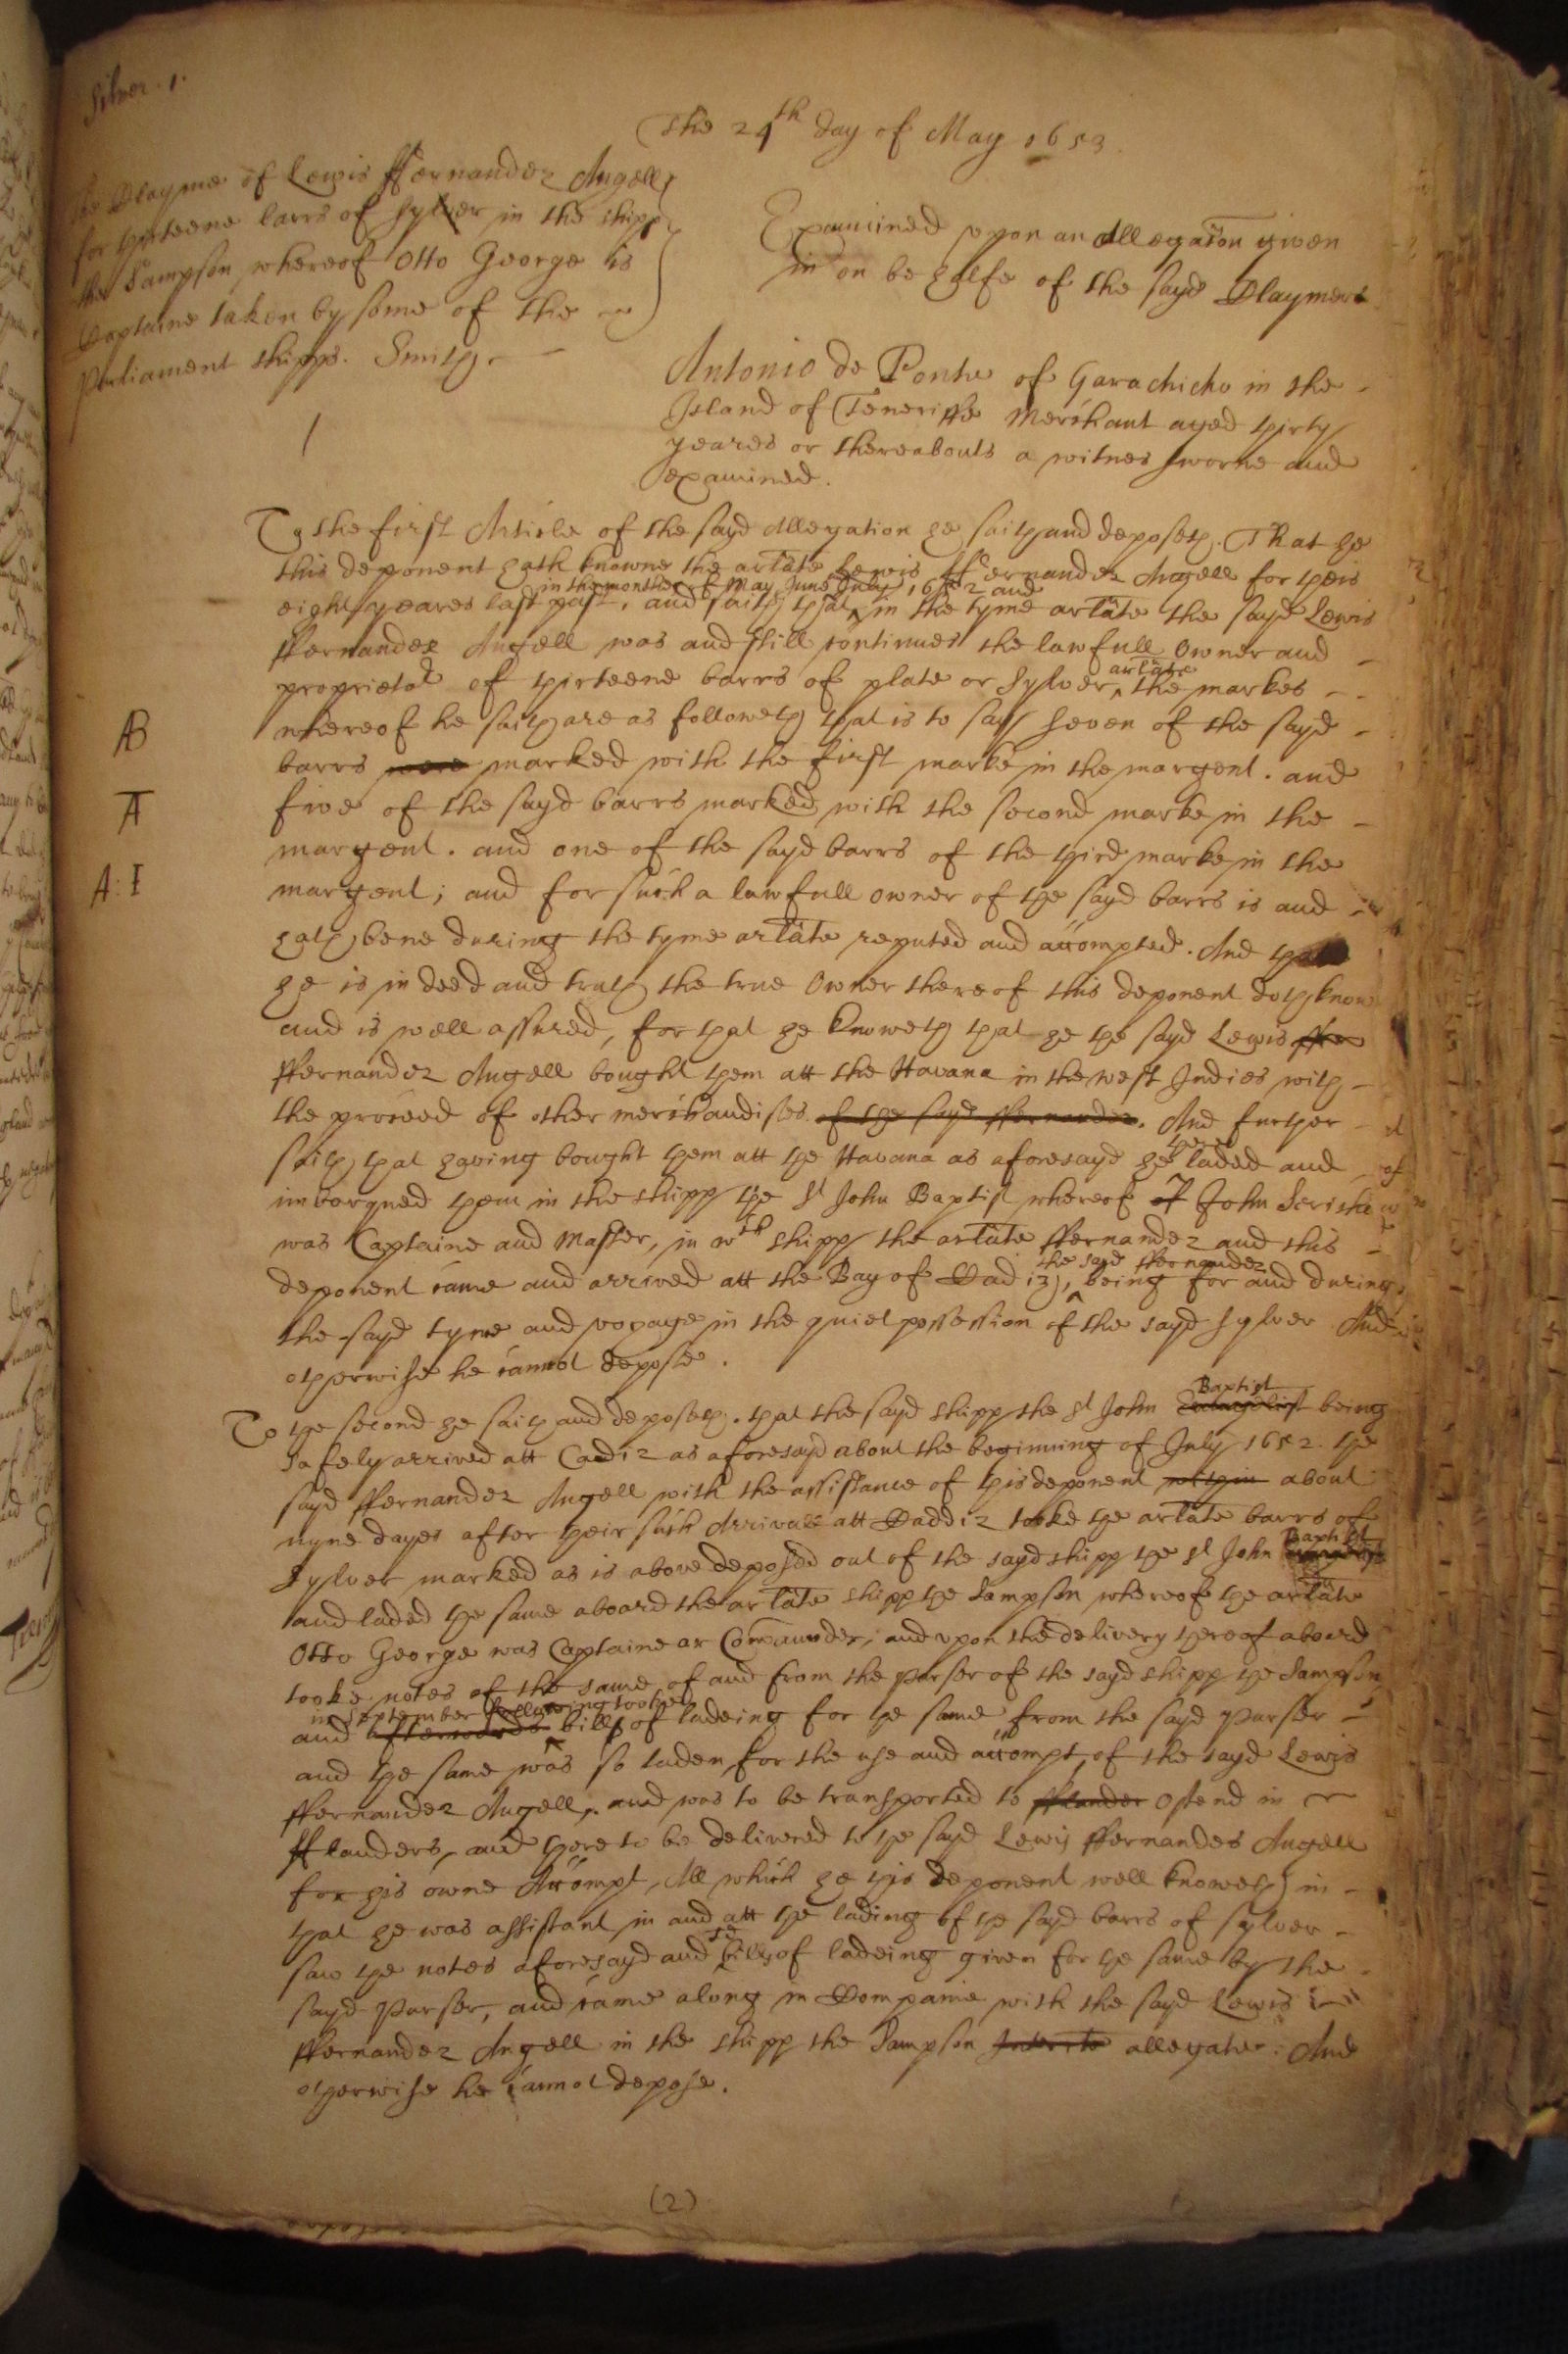 Silver. 1.
The 24th day of May 1653
The Clayme of Lewis ffernandez Angell
for thirteene barrs of sylver in the shipp
the Sampson whereof Otto George is
Captaine taken by some of the
Parliament shipps. Smith.
Examined upon an Allegation given
in on behalfe of the sayd Claymers
1
Antonio de Ponte of Garachicho in the
Island of Teneriffe Merchant aged thirty
yeares or thereabouts a witnes sworne and
examined.
To the first Article of the sayd Allegation he saith and deposeth. That he
this deponent hath knowne the arlate Lewis ffernandez Angell for theis
in the monthes of May June July 1652 and
eight yeares last past, and saith that in the tyme arlate the sayd Lewis
ffernandez Angell was and still continues the lawfull Owner and
arlate
proprietor of thirteene barrs of plate or Sylver, the markes
whereof he saith are as followeth that is to say seven of the sayd
AB
barrs were marked with the first marke in the margent. and
A
five of the sayd barrs marked with the second marke in the
margent. and one of the sayd barrs of the third marke in the
A: I
margent; and for such a lawfull owner of the sayd barrs is and
hath bene during the tyme arlate reputed and accompted. And that
he is in deed and truth the true Owner thereof this deponent doth know
and is well assured, for that he knoweth that he the sayd Lewis ffer
ffernandez Angell bought them att the Havana in the west Indies with
the proceed of other merchandises of the sayd ffernandez. And further
there
saith that having bought them att the Havana as aforesayd he laded and
imbarqued them in the shipp the St John Baptist whereof John
was Captaine and Master, in wch shipp the arlate ffernandez and this
the sayd ffernandez
deponent came and arrived att the Bay of Cadiz, being for and during
the sayd tyme and voyage in the quiet possession of the sayd sylver And
otherwise he cannot depose.
Baptist
To the second he saith and deposeth. that the sayd shipp the St John Evangelist being
safely arrived att Cadiz as aforesayd about the beginning of July 1652. the
sayd ffernandez Angell with the assistance of this deponent within about
nyne dayes after their such Arrivall att Caddiz tooke the arlate barrs of
Baptist
Sylver marked as is above deposed out of the sayd shipp the St John Evangelist
and laded the same aboard the arlate shipp the Sampson whereof the arlate
Otto George was Captaine or Comaunder, and upon the delivery thereof aboard
tooke notes of the same of and from the Purser of the sayd shipp the Sampson
in September following tooke
and afterwards bills of ladeing for the same from the sayd Purser
and the same was so laden for the use and accompt of the sayd Lewis
ffernandez Angell, and was to be transported to fflander Ostend in
fflanders, and there to be delivered to the sayd Lewis ffernandes Angell
for his owne Accompt, All which he this deponent well knoweth in
that he was assistant in and att the lading of the sayd barrs of sylver
the
saw the notes aforesayd and bills of ladeing given for the same by the
sayd Purser, and came along in Companie with the sayd Lewis
ffernandez Angell in the shipp the Sampson allegate. And
otherwise he cannot depose.
(2)